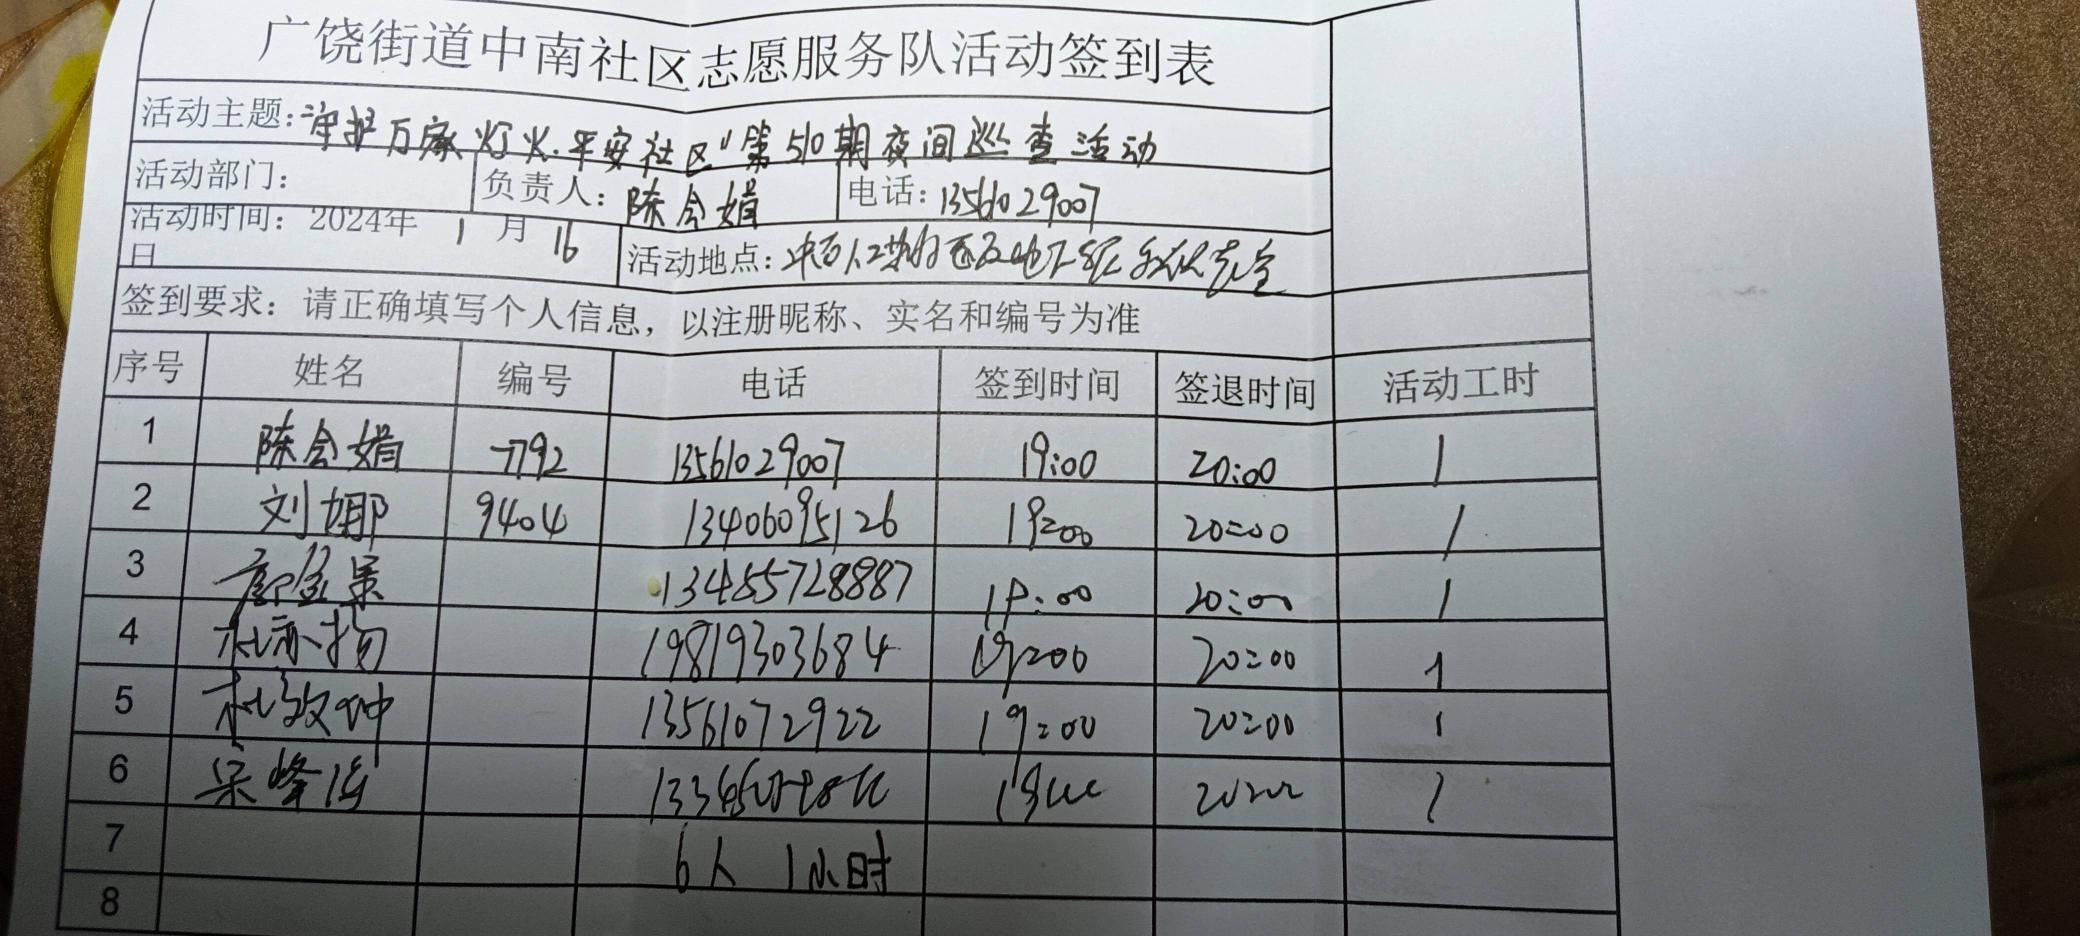 广饶街道中南社区志愿服务队活动签到表
活动主题:"守护万家灯火.平安社区"第510期夜间巡查活动
活动部门: 负责人: 陈会娟 电话: 13561029007
活动时间: 2024年 1 月 16
日 活动地点:
签到要求: 请正确填写个人信息, 以注册昵称、实名和编号为准
序号 姓名 编号 电话 签到时间 签退时间 活动工时
1 陈会娟 7792 13561029007 19:00 20:00 1
2 刘娜 9404 13406095126 19:00 20:00 1
3 134855728887 19:00 20:00 1
4 19819303684 19:00 20:00 1
5 13561072922 19:00 20:00 1
6 1
7 6人 1小时
8